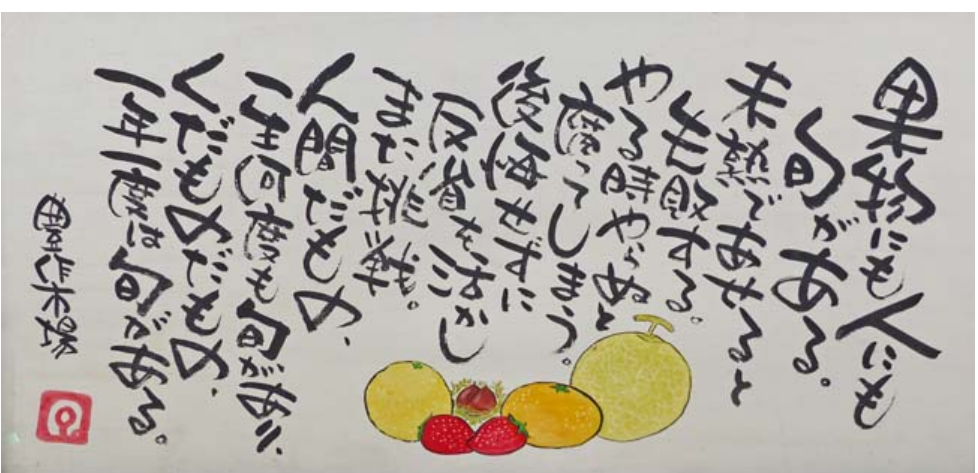 果物にも人にも
旬がある。
未熟であせると
失敗する。
やる時やらぬと
腐ってしまう。
後悔せずに
反省を活かし
また挑戦。
人間だもの、
一生何度も旬があり、
くだものだもの、
一年一度は旬がある。